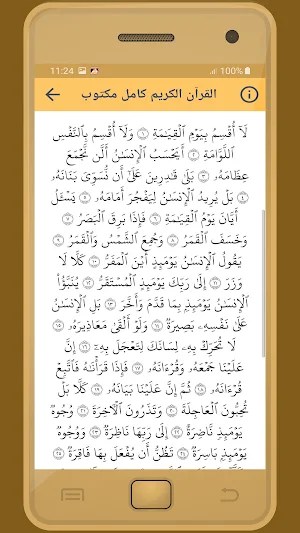 11:24
100%
القرآن الكريم كامل مكتوب
لَآ أُقْسِمُ بِيَوْمِ ٱلْقِيَـٰمَةِ ١ وَلَآ أُقْسِمُ بِٱلنَّفْسِ
ٱللَّوَّامَةِ ٢ أَيَحْسَبُ ٱلْإِنسَـٰنُ أَلَّن نَّجْمَعَ
عِظَامَهُۥ ٣ بَلَىٰ قَـٰدِرِينَ عَلَىٰٓ أَن نُّسَوِّىَ بَنَانَهُۥ
٤ بَلْ يُرِيدُ ٱلْإِنسَـٰنُ لِيَفْجُرَ أَمَامَهُۥ ٥ يَسْـَٔلُ
أَيَّانَ يَوْمُ ٱلْقِيَـٰمَةِ ٦ فَإِذَا بَرِقَ ٱلْبَصَرُ ٧
وَخَسَفَ ٱلْقَمَرُ ٨ وَجُمِعَ ٱلشَّمْسُ وَٱلْقَمَرُ ٩
يَقُولُ ٱلْإِنسَـٰنُ يَوْمَئِذٍ أَيْنَ ٱلْمَفَرُّ ١٠ كَلَّا لَا
وَزَرَ ١١ إِلَىٰ رَبِّكَ يَوْمَئِذٍ ٱلْمُسْتَقَرُّ ١٢ يُنَبَّؤُا۟
ٱلْإِنسَـٰنُ يَوْمَئِذٍۭ بِمَا قَدَّمَ وَأَخَّرَ ١٣ بَلِ ٱلْإِنسَـٰنُ
عَلَىٰ نَفْسِهِۦ بَصِيرَةٌ ١٤ وَلَوْ أَلْقَىٰ مَعَاذِيرَهُۥ ١٥
لَا تُحَرِّكْ بِهِۦ لِسَانَكَ لِتَعْجَلَ بِهِۦٓ ١٦ إِنَّ
عَلَيْنَا جَمْعَهُۥ وَقُرْءَانَهُۥ ١٧ فَإِذَا قَرَأْنَـٰهُ فَٱتَّبِعْ
قُرْءَانَهُۥ ١٨ ثُمَّ إِنَّ عَلَيْنَا بَيَانَهُۥ ١٩ كَلَّا بَلْ
تُحِبُّونَ ٱلْعَاجِلَةَ ٢٠ وَتَذَرُونَ ٱلْـَٔاخِرَةَ ٢١ وُجُوهٌ
يَوْمَئِذٍ نَّاضِرَةٌ ٢٢ إِلَىٰ رَبِّهَا نَاظِرَةٌ ٢٣ وَوُجُوهٌ
يَوْمَئِذٍۭ بَاسِرَةٌ ٢٤ تَظُنُّ أَن يُفْعَلَ بِهَا فَاقِرَةٌ ٢٥